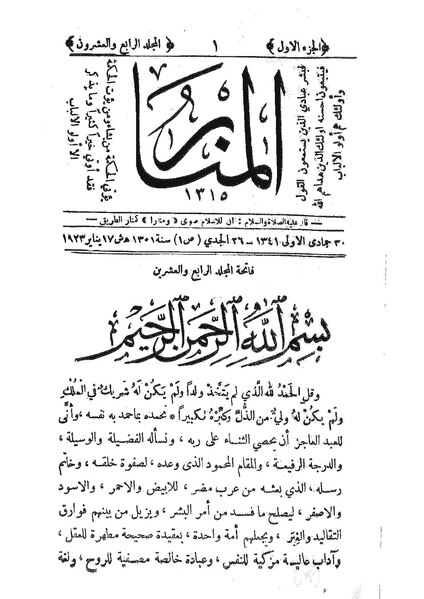 ﴿الجزء الاول﴾ ١ ﴿المجلد الرابع والعشرون﴾
فبشر عبادي الذين يستمعون القول
فيتبعون احسنه اولئك الذين هداهم الله
وأولئك هم أولو الالباب
المنار
١٣١٥
يؤتي الحكمة من يشاء ومن يؤت الحكمة
فقد أوتي خيراً كثيراً وما يذكر
الا أولو الالباب
قال عليه الصلاة والسلام : ان للاسلام صوى «ومنارا» كمنار الطريق
٣٠ جمادى الاولى ١٣٤١ — ٢٦ الجدي (ص١) سنة ١٣٠١ ه‍ش ١٧ يناير ١٩٢٣
فاتحة المجلد الرابع والعشرين
بسم الله الرحمن الرحيم
وقل الحَمْدُ لله الَّذي لم يَتَّخِذْ ولداً ولَمْ يَكُنْ لَهُ شريكٌ في المُلْكِ
ولَمْ يكن لَهُ وليٌّ من الذُّلِّ وكَبِّرْهُ تكبيراً * نحمده بما حمد به نفسه ، وأنَّى
للعبد العاجز أن يحصي الثناء على ربه ، ونسأله الفضيلة والوسيلة ،
والدرجة الرفيعة ، والمقام المحمود الذى وعده ، لصفوة خلقه ، وخاتم
رسله ، الذي بعثه من عرب مضر ، للابيض والاحمر ، والاسود
والاصفر ، ليصلح ما فسد من أمر البشر ، ويزيل من بينهم فوارق
التقاليد والغِيَر ، ويجعلهم أمة واحدة ، بعقيدة صحيحة مطهرة للعقل ،
وآداب عالية مزكية للنفس ، وعبادة خالصة مصفية للروح ، ولغة